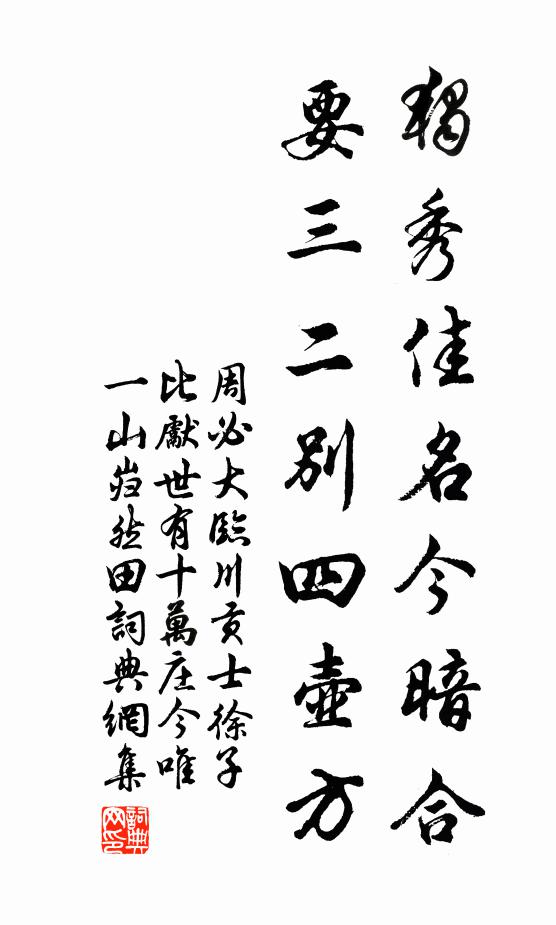 獨秀佳名今暗合
要三二別四壺方
周必大臨川貢士徐子
比獻世有十萬庄今唯
一山巋然田詞典網集
詞典網印